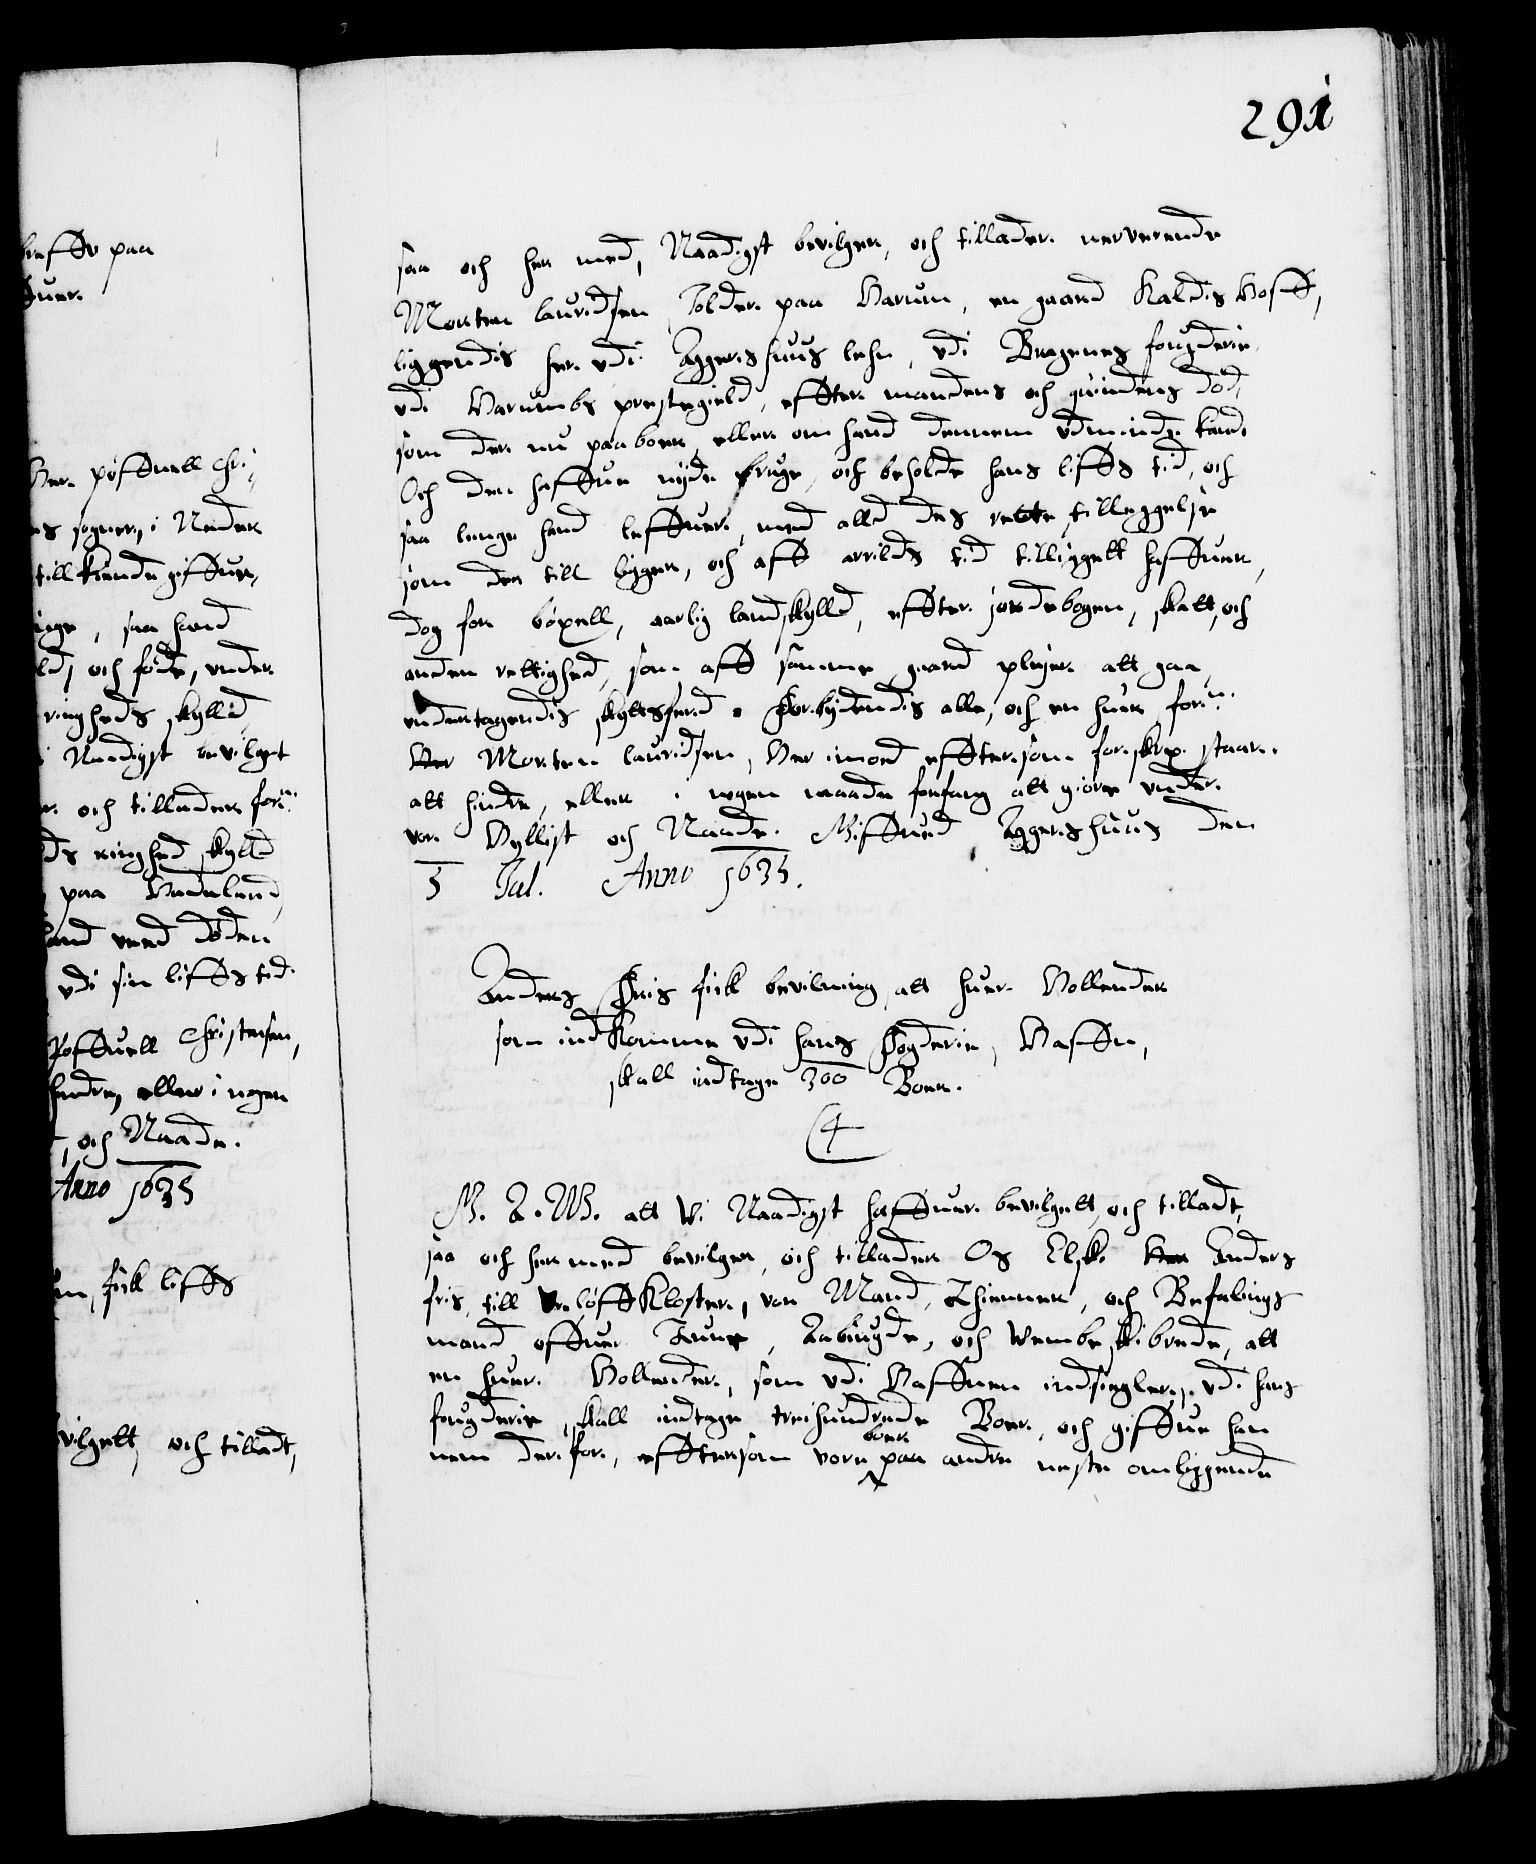 291
saa och her med, Naadigst bevilger, och tillader. nerverende
Morten lauridsen, Tolder paa Harum, en gaard Kaldis Hoff,
liggendis her. udi Aggershuus lehn, udi Bragenes fougderie
udi Harumbs prestegield, effter mandens och quindens död,
som der nu paaboer, eller om hand dennem udminde kand.
Och den haffue nyde bruge, och beholde hans liffs tid, och
saa lenge hand leffuer, med alld des rette tilleggelse
som der till ligger, och aff arrilds tid tilliggett haffuer,
dog for böxell, aarlig landskylld, effter jordebogen, skatt, och
anden rettighed, som aff samme gaard plejer att gaa,
undertagendis skydtsferd. Forbydendis alle, och en huer forn:
Morten lauridsen, Her imod efftersom forskrp. staar.
att hindre, eller i nogen maade forfang att giöre under.
vor Hyllist och Naade. Giffued Aggershuus den
5 Jul. Anno 1635.
Anders Fris fick bevilning, att huer Hollender
som indkomme udi hans Fogderie, Haffn,
skall indtage 300 Boer.
G. A. W. att Wi Naadigst haffuer. bevilgett, och tilladt,
saa och her med bevilger, och tillader Os Elsk. Anders
fris, till Kloster, vor Mand, Thienner, och Befalings
mand offuer, Aabuyde, och Wembe skibrede, att
en huer. Hollender, som udi Haffnen indsegler, udi hans
fougderie, skall indtage treihundrede Boer, och giffue han
boer
nem der. for, efftersom vore paa andre neste omliggende
breffv paa
Her. poffuell Chri-
sogner, i Neder
till kiende giffuer,
saa hand
och föde, under
ringheds skylld
Naadigst bevilget
och tillader forn:
ringhed skylld
paa Hedeland,
hand ved döden
udi sin liffs tid.
Poffuell Christensen,
hindre, eller i nogen
och Naade.
Anno 1635
fick liffs
vilgett, och tilladt,